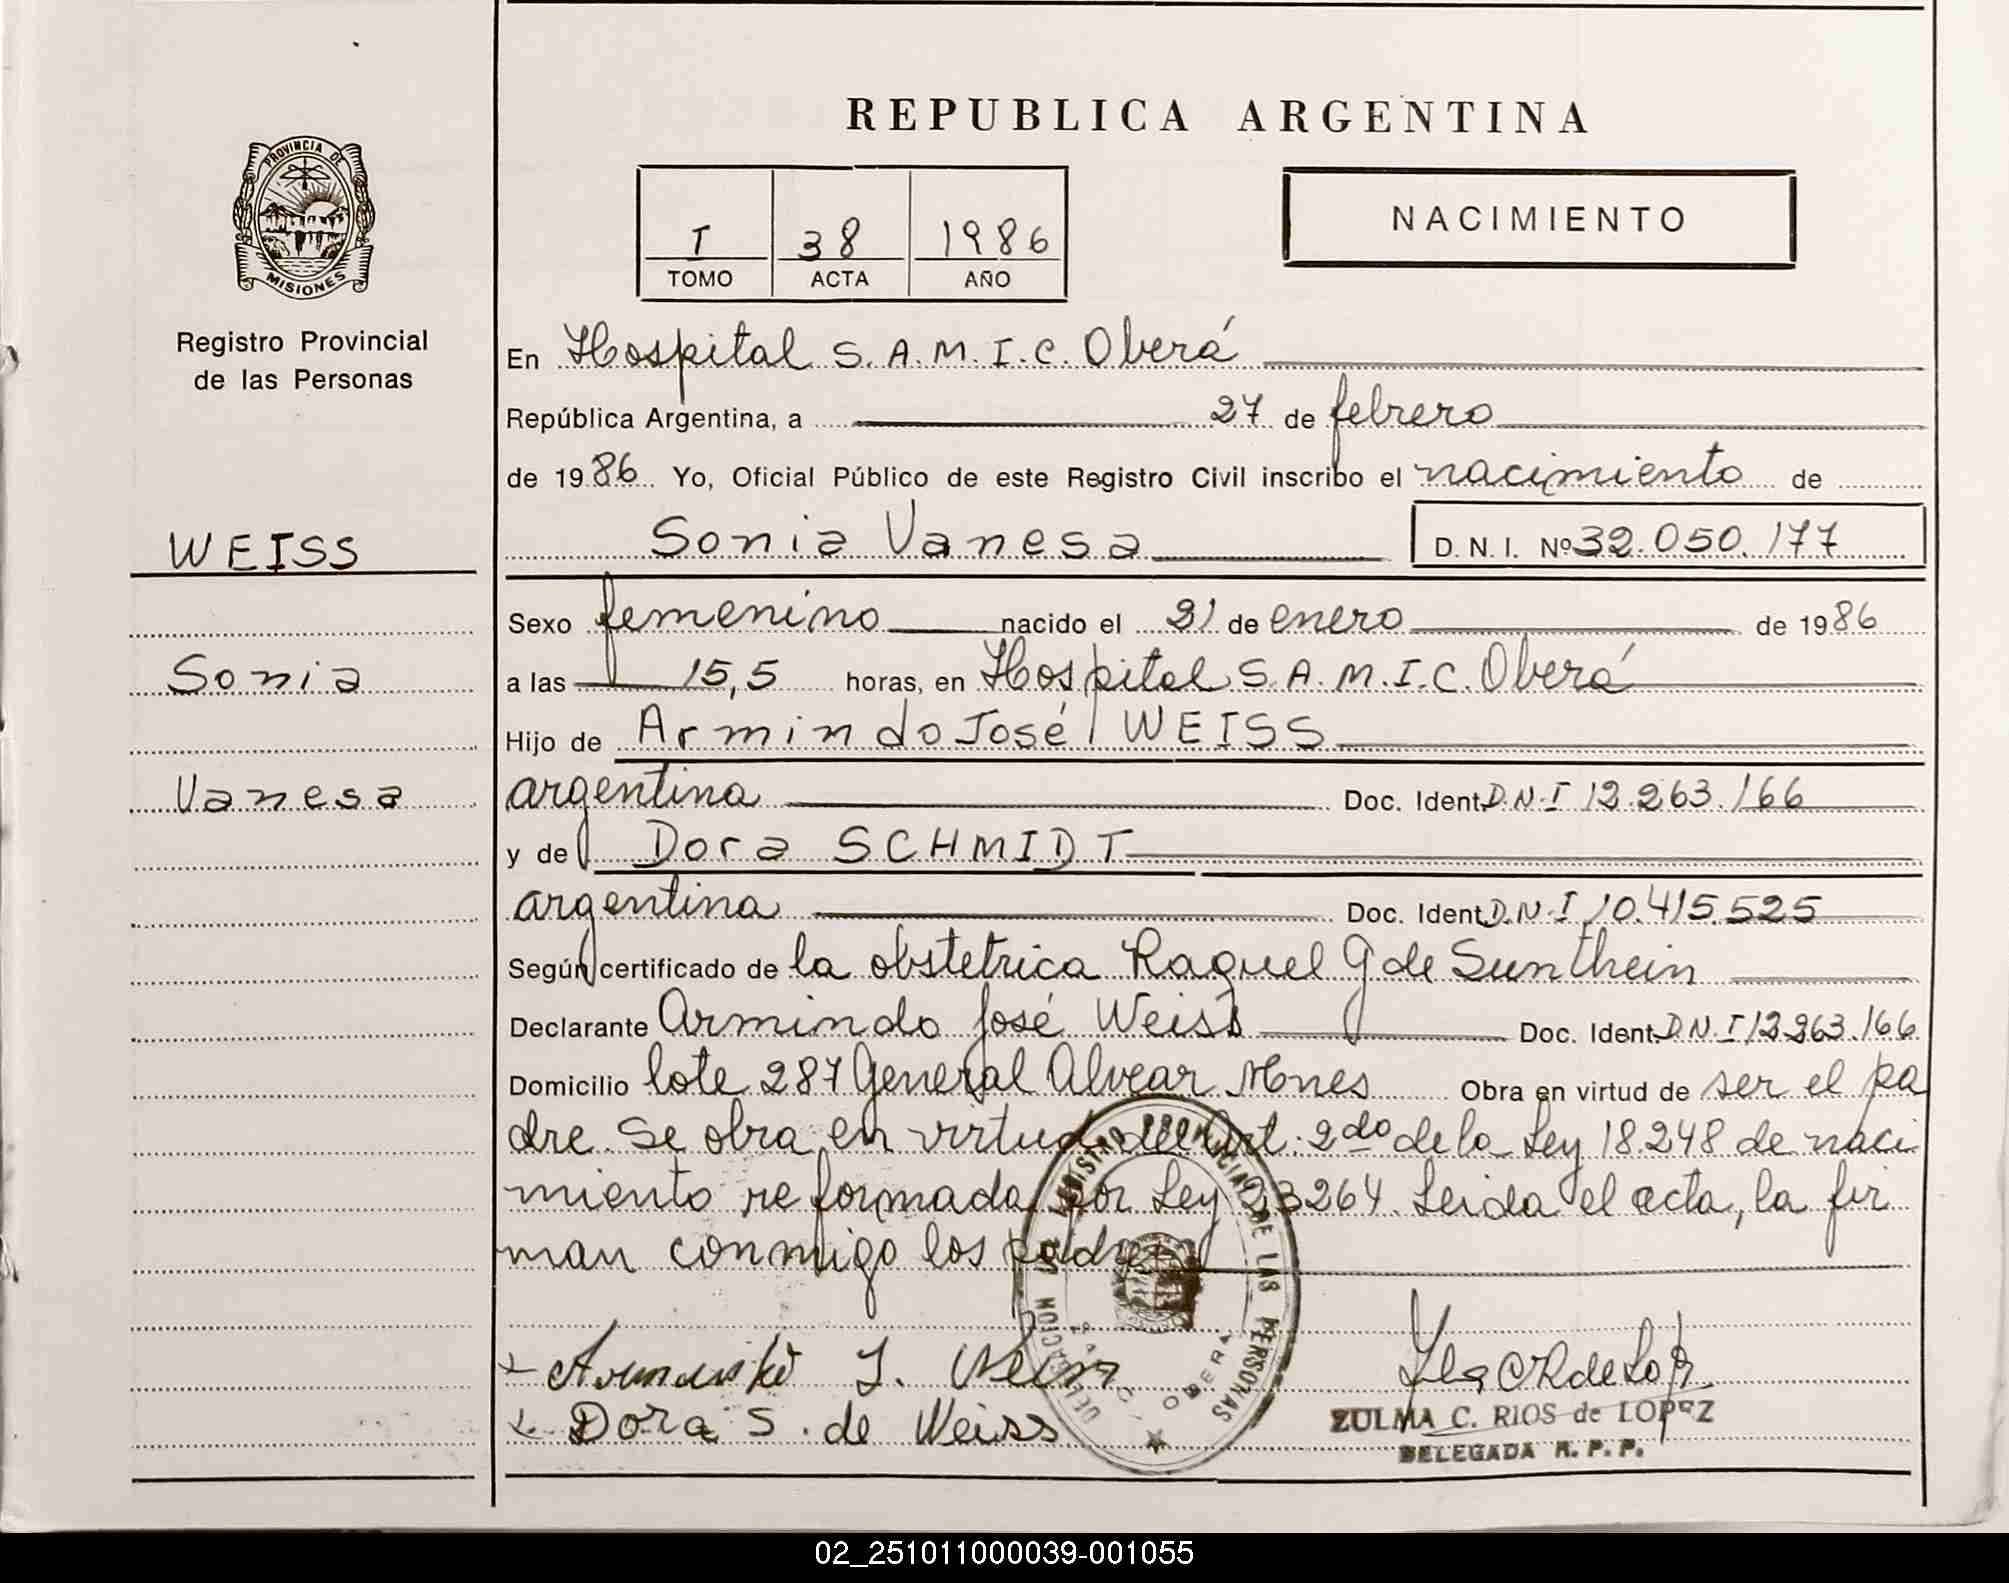 REPUBLICA ARGENTINA
PROVINCIA DE
MISIONES
Registro Provincial
de las Personas
I 38 1986
TOMO ACTA AÑO
NACIMIENTO
En Hospital S.A.M.I.C. Oberá
República Argentina, a 27 de febrero
de 1986 Yo, Oficial Público de este Registro Civil inscribo el nacimiento de
WEISS
Sonia Vanesa D. N. I. Nº 32.050.177
Sexo femenino nacido el 21 de enero de 1986
Sonia
a las 15,5 horas, en Hospital S.A.M.I.C. Oberá
Hijo de Armindo José WEISS
Vanesa
argentina Doc. Ident. D.N.I 12.263.166
y de Dora SCHMIDT
argentina Doc. Ident. D.N.I 10.415.525
Según certificado de la obstetrica Raquel G de Sunthein
Declarante Armindo José Weiss Doc. Ident. D.N.I 12.263.166
Domicilio lote 287 General Alvear Mnes Obra en virtud de ser el pa
dre. Se obra en virtud del Art. 2do de la Ley 18.248 de naci
miento reformada por Ley 23264. Leida el acta, la fir
man conmigo los padres
J. Weiss
Dora S. de Weiss
DELEGACION REGISTRO PROVINCIAL DE LAS PERSONAS
OBERA
ZULMA C. RIOS de LOPEZ
DELEGADA R. P. P.
02_251011000039-001055